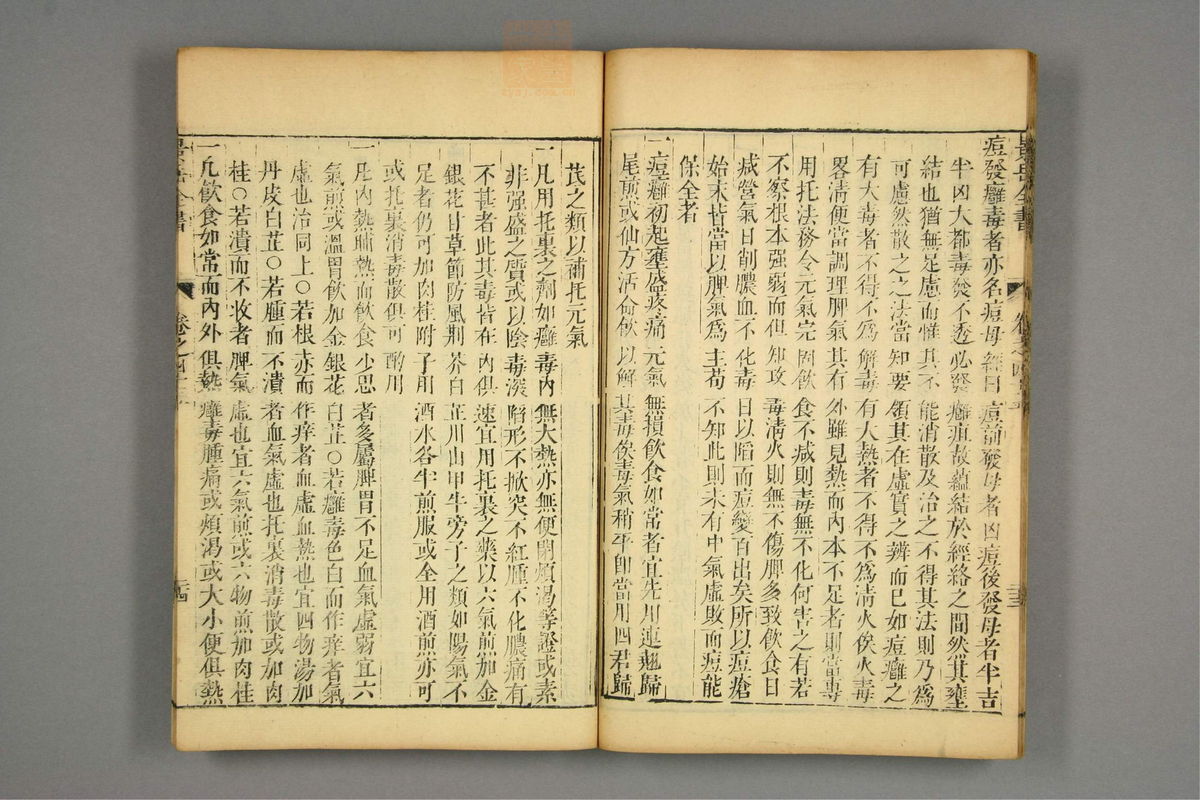 痘發癰毒者亦名痘母經曰痘前發母者凶痘後發母者半吉
半凶大都毒發不透必發癰疽故蘊結於經絡之間然其壅
結也猶無足慮而惟其不能消散及治之不得其法則乃爲
可慮然散之之法當知要領其在虛實之辨而已如痘癰之
有大毒者不得不爲解毒有大熱者不得不爲清火俟火毒
畧清便當調理脾氣其有外雖見熱而內本不足者則當專
用托法務令元氣完固飲食不减則毒無不化何害之有若
不察根本強弱而但知攻毒清火則無不傷脾多致飲食日
减營氣日削膿血不化毒日以陷而痘變百出矣所以痘瘡
始末皆當以脾氣爲主苟不知此則未有中氣虛敗而痘能
保全者
一痘癰初起壅盛疼痛元氣無損飲食如常者宜先用連翹歸
尾煎或仙方活命飲以解其毒俟毒氣稍平卽當用四君歸
芪之類以補托元氣
一凡用托裏之劑如癰毒內無大熱亦無便閉煩渴等證或素
非强盛之質或以陰毒深陷形不掀突不紅腫不化膿痛有
不甚者此其毒皆在內俱速宜用托裏之藥以六氣煎加金
銀花甘草節防風荆芥白芷川山甲牛旁子之類如陽氣不
足者仍可加肉桂附子用酒水各半煎服或全用酒煎亦可
或托裏消毒散俱可酌用
一凡內熱晡熱而飲食少思者多屬脾胃不足血氣虛弱宜六
氣煎或溫胃飲加金銀花白芷○若癰毒色白而作痒者氣
虛也治同上○若根赤而作痒者血虛血熱也宜四物湯加
丹皮白芷○若腫而不潰者血氣虛也托裏消毒散或加肉
桂○若潰而不收者脾氣虛也宜六氣煎或六物煎加肉桂
一凡飲食如常而內外俱熱癰毒腫痛或煩渴或大小便俱熱